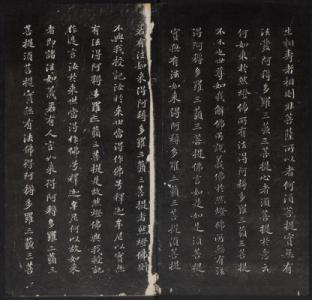 生相壽者相則非菩薩所以者何須菩提實無有
法發阿耨多羅三藐三菩提心者須菩提於意云
何如來於然燈佛所有法得阿耨多羅三藐三菩提
不不也世尊如我解佛所說義佛於然燈佛所無有法
得阿耨多羅三藐三菩提佛言如是如是須菩提
實無有法如來得阿耨多羅三藐三菩提須菩提
若有法如來得阿耨多羅三藐三菩提者然燈佛
不與我授記汝於來世當得作佛号釋迦牟尼以實無
有法得阿耨多羅三藐三菩提是故然燈佛與我授記
作是言汝於來世當得作佛号釋迦牟尼何以故如來
者即諸法如義若有人言如來得阿耨多羅三藐三
菩提須菩提實無有法佛得阿耨多羅三藐三菩